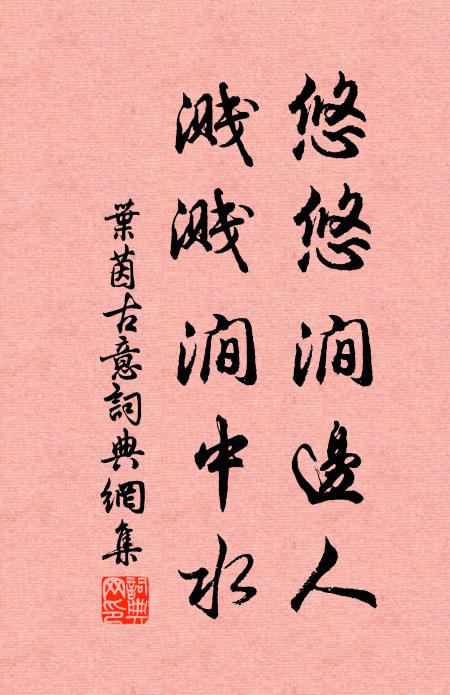 悠悠澗邊人
濺濺澗中水
葉茵古意詞典網集
詞典網印